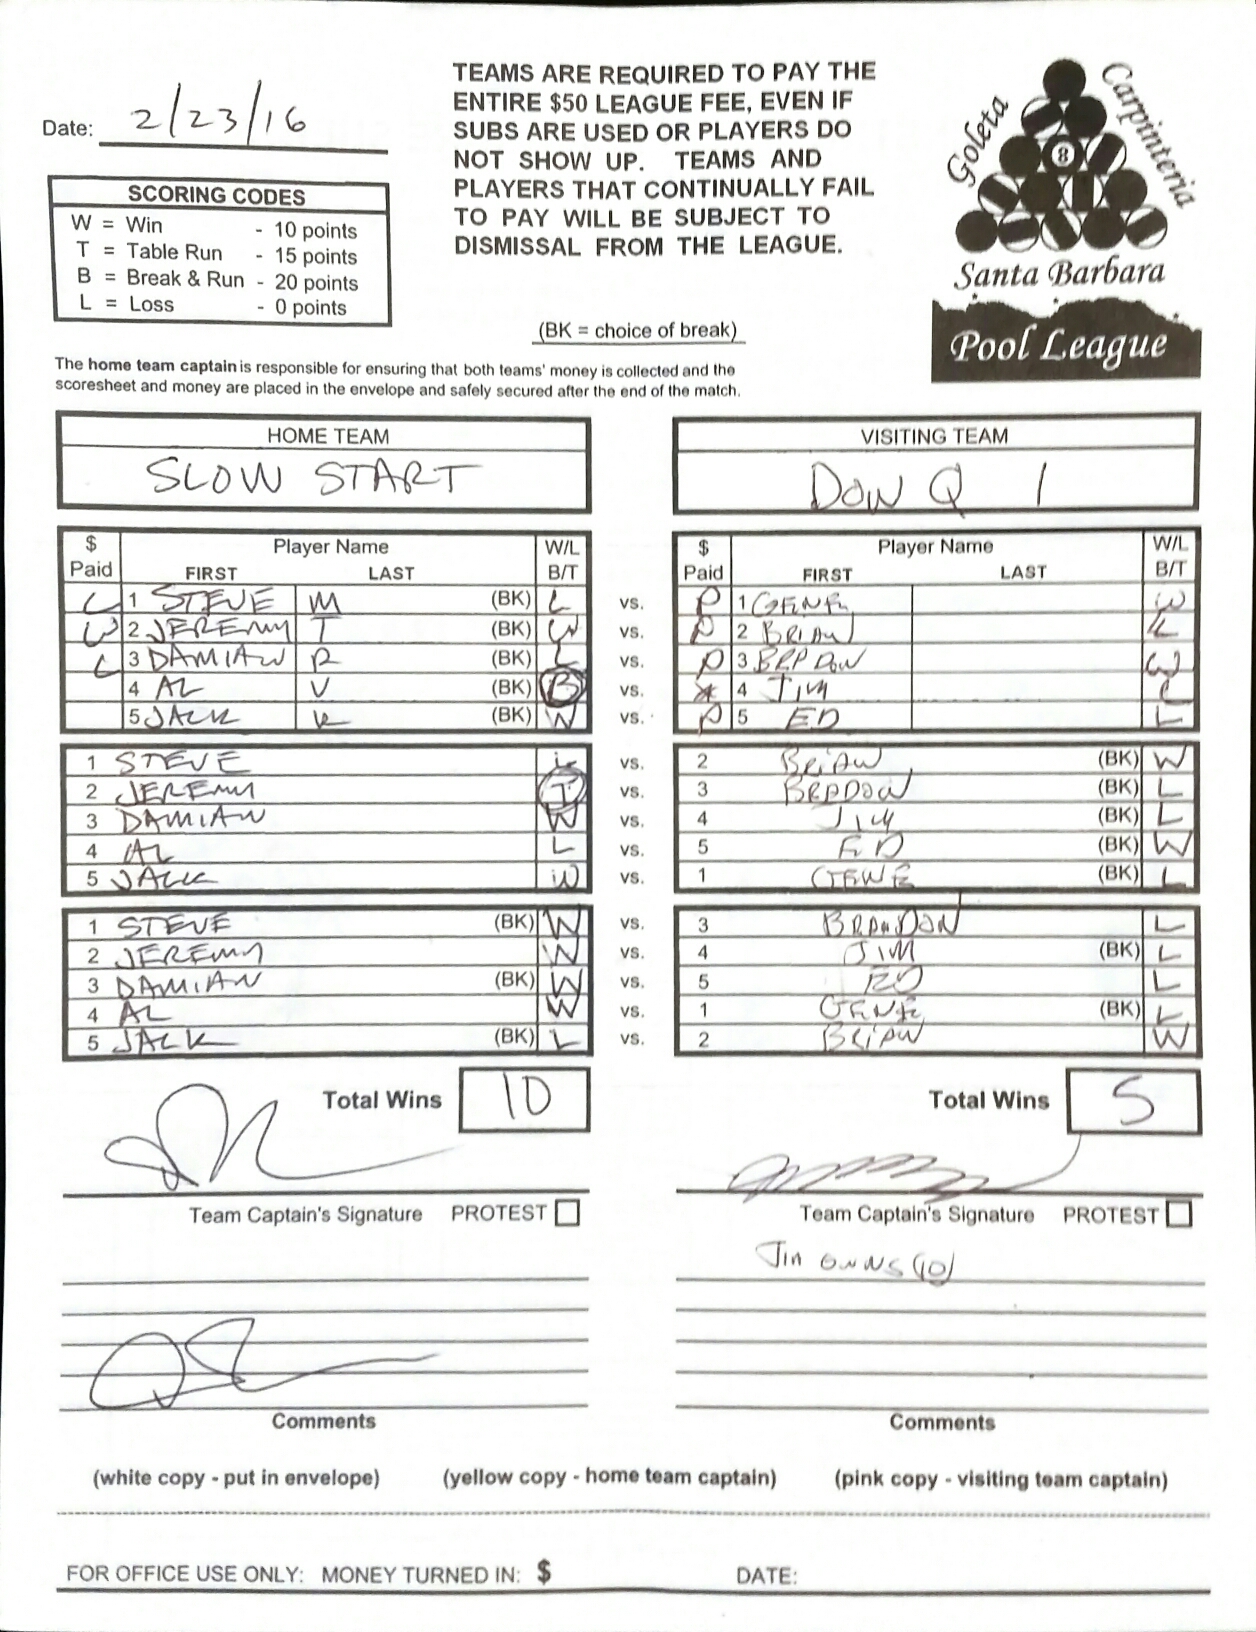 Date: 2/23/16
TEAMS ARE REQUIRED TO PAY THE
ENTIRE $50 LEAGUE FEE, EVEN IF
SUBS ARE USED OR PLAYERS DO
NOT SHOW UP. TEAMS AND
PLAYERS THAT CONTINUALLY FAIL
TO PAY WILL BE SUBJECT TO
DISMISSAL FROM THE LEAGUE.
Goleta
Carpinteria
8
Santa Barbara
Pool League
SCORING CODES
W = Win - 10 points
T = Table Run - 15 points
B = Break & Run - 20 points
L = Loss - 0 points
(BK = choice of break)
The home team captain is responsible for ensuring that both teams' money is collected and the
scoresheet and money are placed in the envelope and safely secured after the end of the match.
HOME TEAM VISITING TEAM
SLOW START DON Q 1
$ Paid Player Name FIRST LAST W/L B/T $ Paid Player Name FIRST LAST W/L B/T
L 1 STEVE M (BK) L vs. P 1 GENE W
W 2 JEREMY T (BK) W vs. P 2 BRIAN L
L 3 DAMIAN R (BK) L vs. P 3 W
4 AL V (BK) B vs. 4 JIM L
5 JACK K (BK) W vs. P 5 ED L
1 STEVE L vs. 2 BRIAN (BK) W
2 JEREMY T vs. 3 (BK) L
3 DAMIAN W vs. 4 JIM (BK) L
4 AL L vs. 5 ED (BK) W
5 JACK W vs. 1 GENE (BK) L
1 STEVE (BK) W vs. 3 BRANDON L
2 JEREMY W vs. 4 JIM (BK) L
3 DAMIAN (BK) W vs. 5 ED L
4 AL W vs. 1 GENE (BK) L
5 JACK (BK) L vs. 2 BRIAN W
Total Wins 10 Total Wins 5
Team Captain's Signature PROTEST Team Captain's Signature PROTEST
Jim OWNS (10)
Comments Comments
(white copy - put in envelope) (yellow copy - home team captain) (pink copy - visiting team captain)
FOR OFFICE USE ONLY: MONEY TURNED IN: $ DATE: